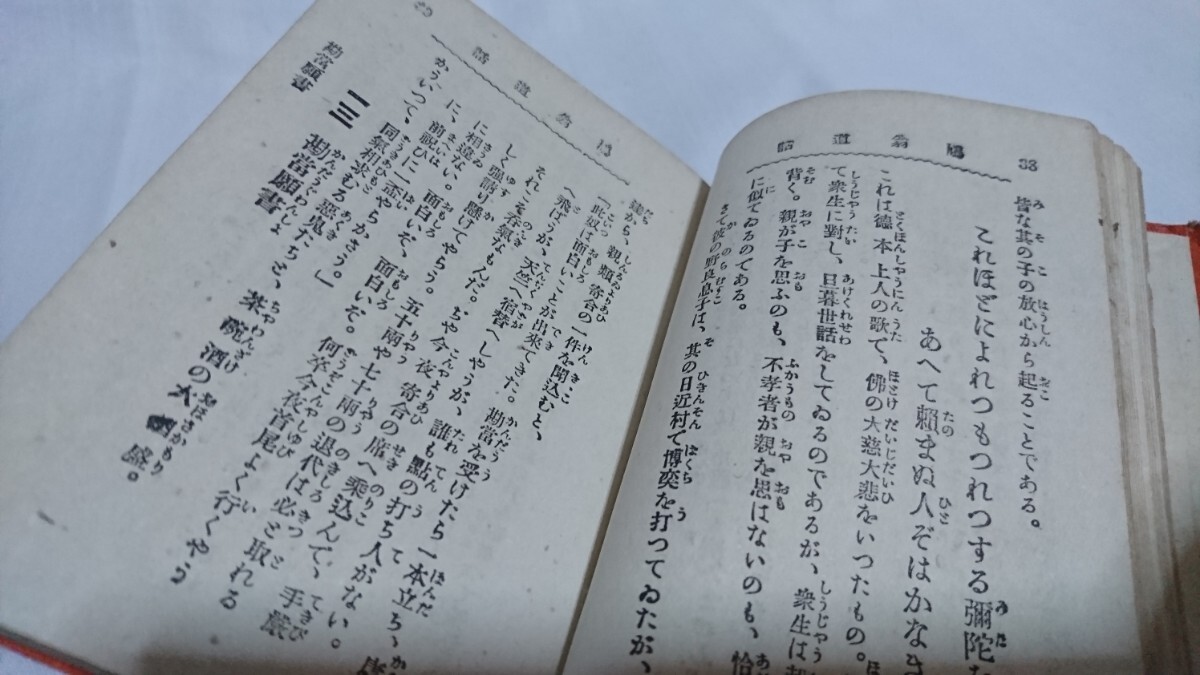 鳩翁道話
38
皆な其の子の放心から起ることである。
これほどによれつもつれつする彌陀
あへて賴まぬ人ぞはかなき
これは德本上人の歌で、佛の大慈大悲をいつたもの。
て衆生に對し、旦暮世話をしてゐるのであるが、衆生は
背く。親が子を思ふのも、不孝者が親を思はないのも、恰
に似てゐるのである。
さて彼の野良息子は、其の日近村で博奕を打つてゐたが、
鳩翁道話
から、親類寄合の一件を聞込むと、
「此奴は面白いことが出來てきた。勘當を受けたら一本立ち、
へ飛ばうが、天竺へ宿替へしやうが、誰も點の打ち人がない。
それこそ呑氣なもんだ。ぢや今夜、寄合の席へ乘込んで、手嚴
しく強請り懸けてやらう。五十兩や七十兩の退代は必と取れる
に相違ない。面白いぞ、面白いぞ。何卒今夜首尾よく行くやう
に、前祝ひに一盃やらかさう。」
かういつて、同氣相求むる惡鬼たちと、茶碗酒の大酒盛。
一三 勘當願書
勘當願書